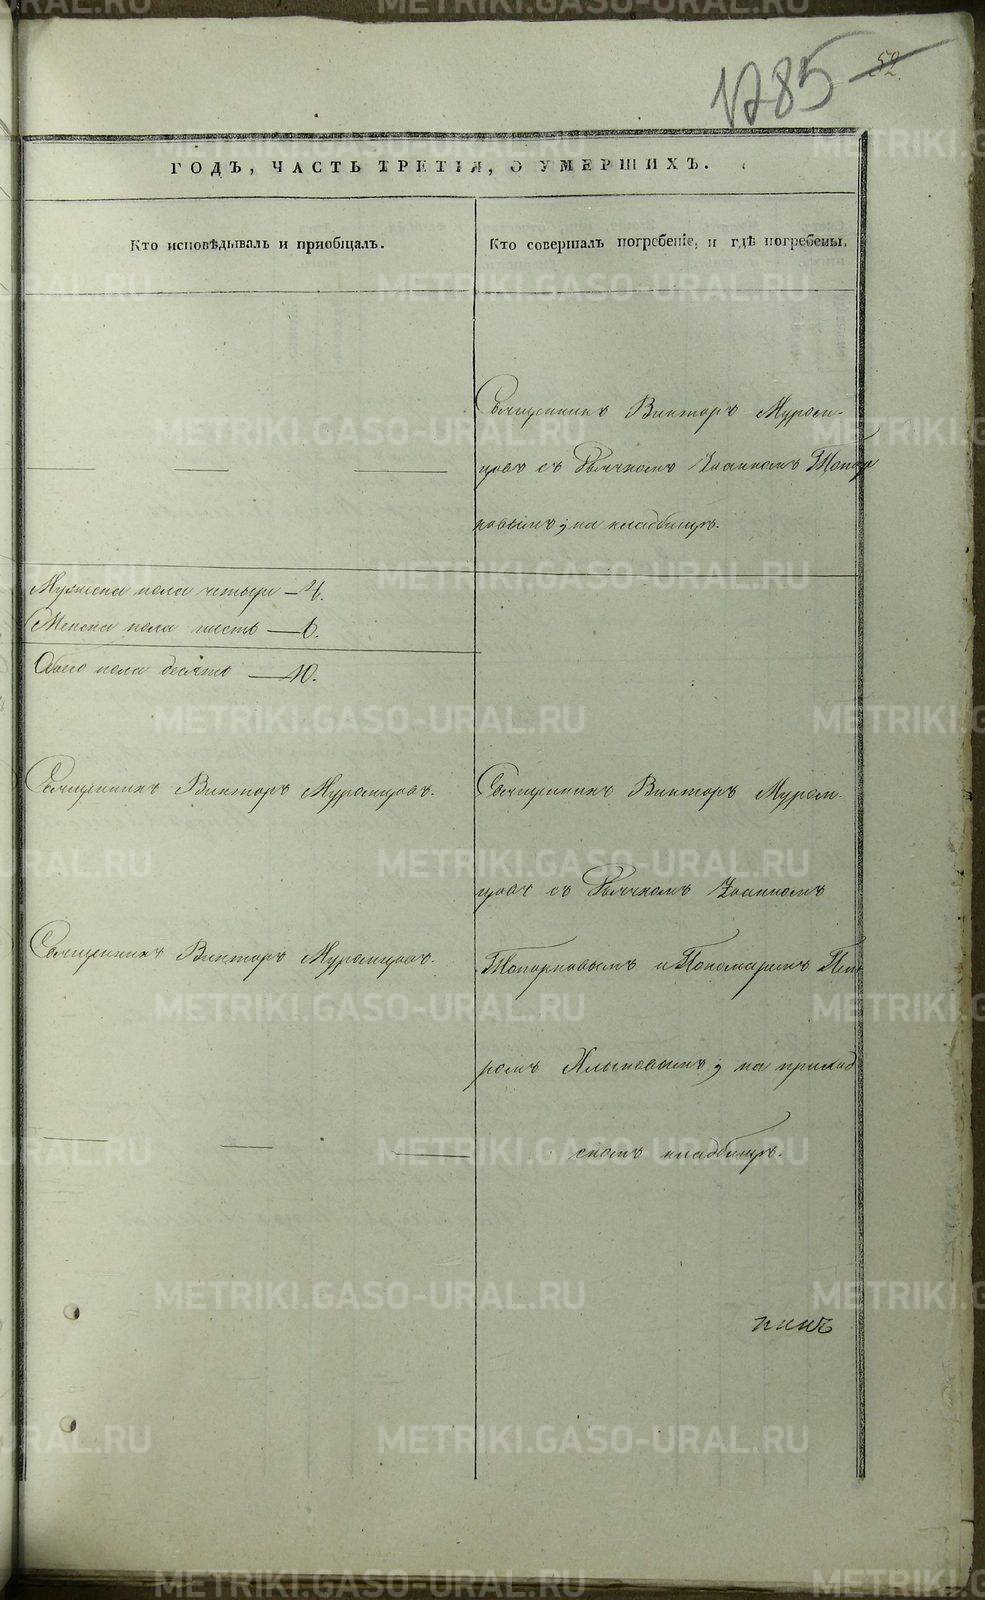 1785
52.
ГОДЪ, ЧАСТЬ ТРЕТІЯ, О УМЕРШИХЪ.
Кто исповѣдывалъ и приобщалъ.
Кто совершалъ погребеніе, и гдѣ погребены.
Священникъ Викторъ Муром-
цовъ съ Дьячкомъ Іоанномъ Топор
ковымъ, на кладбищѣ.
Мужеска пола четыре — 4.
Женска пола шесть — 6.
Обоего пола десять — 10.
Священникъ Викторъ Муромцовъ.
Священникъ Викторъ Муромцовъ.
Священникъ Викторъ Муром-
цовъ съ Дьячкомъ Іоанномъ
Топорковымъ и Пономаремъ Пет
ромъ Хлыновымъ, на приход
скомъ кладбищѣ.
никъ
METRIKI.GASO-URAL.RU